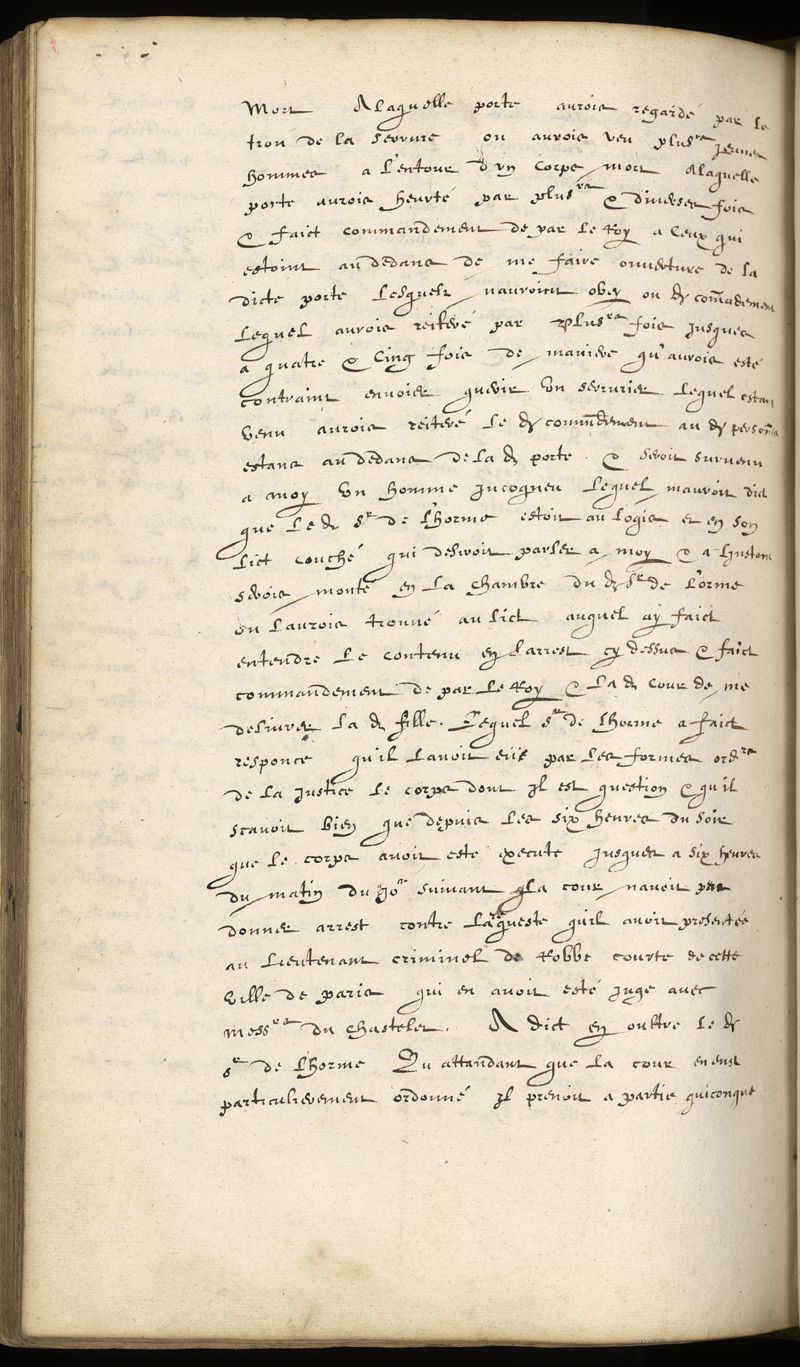 Mort Alaquelle porte aurois regardé par le
trou de la serrure ou aurois veu plusrs jeunes
hommes a l'entour d'un corps mort Alaquelle
porte aurois heurté par plusrs & diverses fois
& faict commandement de par le Roy a ceux qui
estoint audedans de me faire ouverture de la
dicte porte lesquelz nauroint obey au d commademen
Lequel aurois reiteré par plusrs fois jusques
a quatre & cinq fois de maniere qu'aurois esté
contraint envoier querir un serrurier lequel estan
venu aurois reiteré le d commdement au d personnes
estans audedans de la d porte. & seroit survenu
a moy un homme Jncogneu lequel mauroit dict
que le d Sr de Lhorme estoit au logis et en son
lict couché qui desiroit parler a moy & a linstant
serois monté en la chambre du d Sr de L'orme
ou laurois trouvé au lict auquel ay faict
entendre le contenu en larrest cy dessus & faict
commandement de par le Roy & la d cour de me
delivrer la d fille. Lequel Sr de Lhorme a faict
responce qu'il lavoit eüe par les formes ordres
de la justice le corps dont il est question & qu'il
scavoit bien que depuis les six heures du soir
que le corps avoit esté execute jusques a six heures
du matin du jor suivant la cour navoit peu
donner arrest contre la rqueste quil avoit presentée
au Lieutenant criminel de Robbe courte de cette
ville de paris qui en avoit esté juge avec
messrs du chastelet. A dict en oultre le d
Sr de Lhorme Qu attandant que la cour en eust
particulierement ordonné il prenoit a partie quiconque